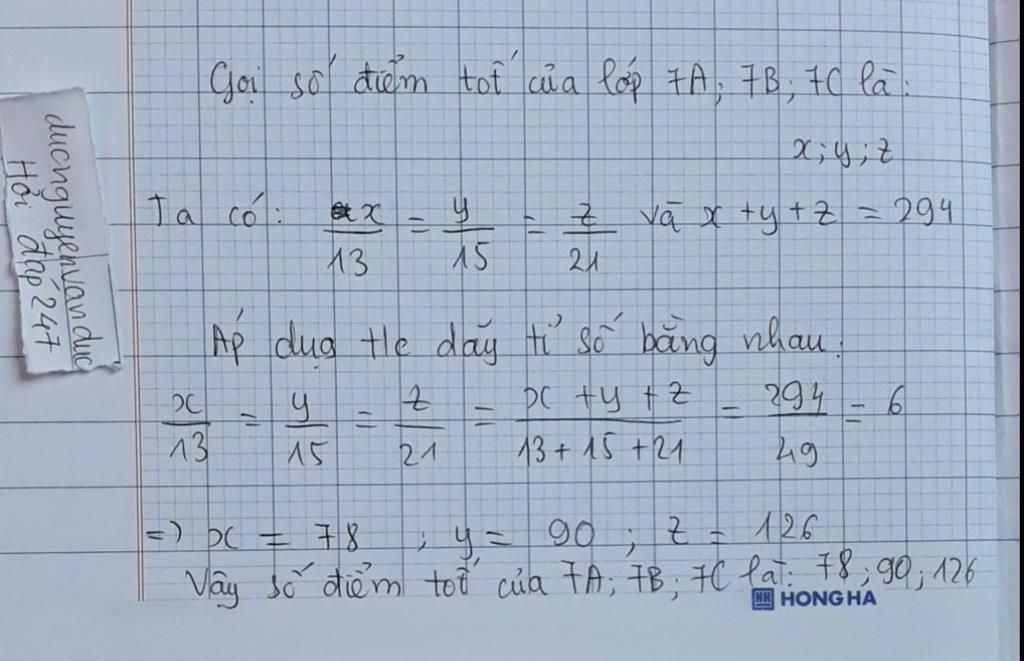 Gọi số điểm tốt của lớp 7A; 7B; 7C là:
x; y; z
Ta có: x/13 = y/15 = z/21 và x + y + z = 294
Áp dụg t/c dãy tỉ số bằng nhau:
x/13 = y/15 = z/21 = (x + y + z)/(13 + 15 + 21) = 294/49 = 6
=> x = 78 ; y = 90 ; z = 126
Vậy số điểm tốt của 7A; 7B; 7C là: 78; 90; 126
HH HONG HA
ducnguyenvanduc
Hỏi đáp 247